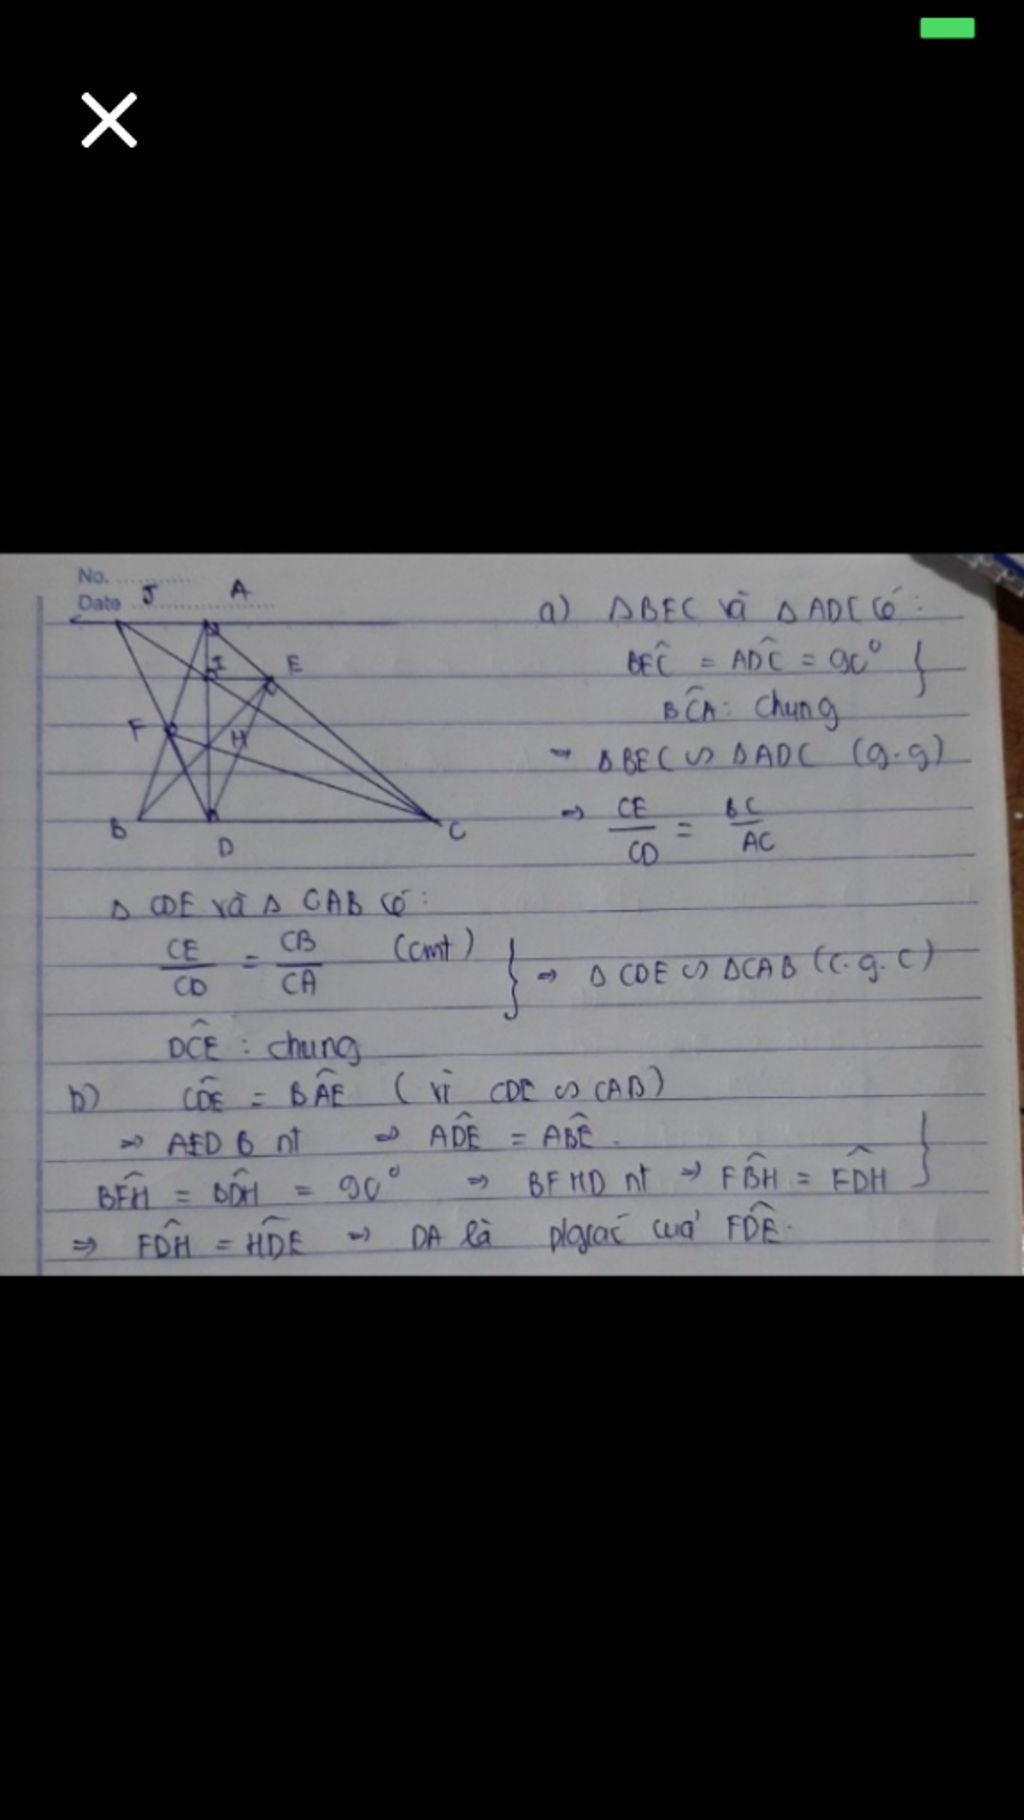 No. ............
Date ........................
J A
I E
F H
B D C
a) ΔBEC và ΔADC có:
BÊC = AD̂C = 90°
BĈA: chung
⇒ ΔBEC ∽ ΔADC (g.g)
⇒ CE/CD = BC/AC
Δ CDE và Δ CAB có:
CE/CD = CB/CA (cmt)
⇒ Δ CDE ∽ ΔCAB (c.g.c)
DĈE : chung
b) CD̂E = BÂE ( vì CDE ∽ CAB)
⇒ AEDB nt ⇒ AD̂E = AB̂E.
BF̂H = BD̂H = 90° ⇒ BFHD nt ⇒ FB̂H = FD̂H
⇒ FD̂H = HD̂E ⇒ DA là pgiác của FD̂E.